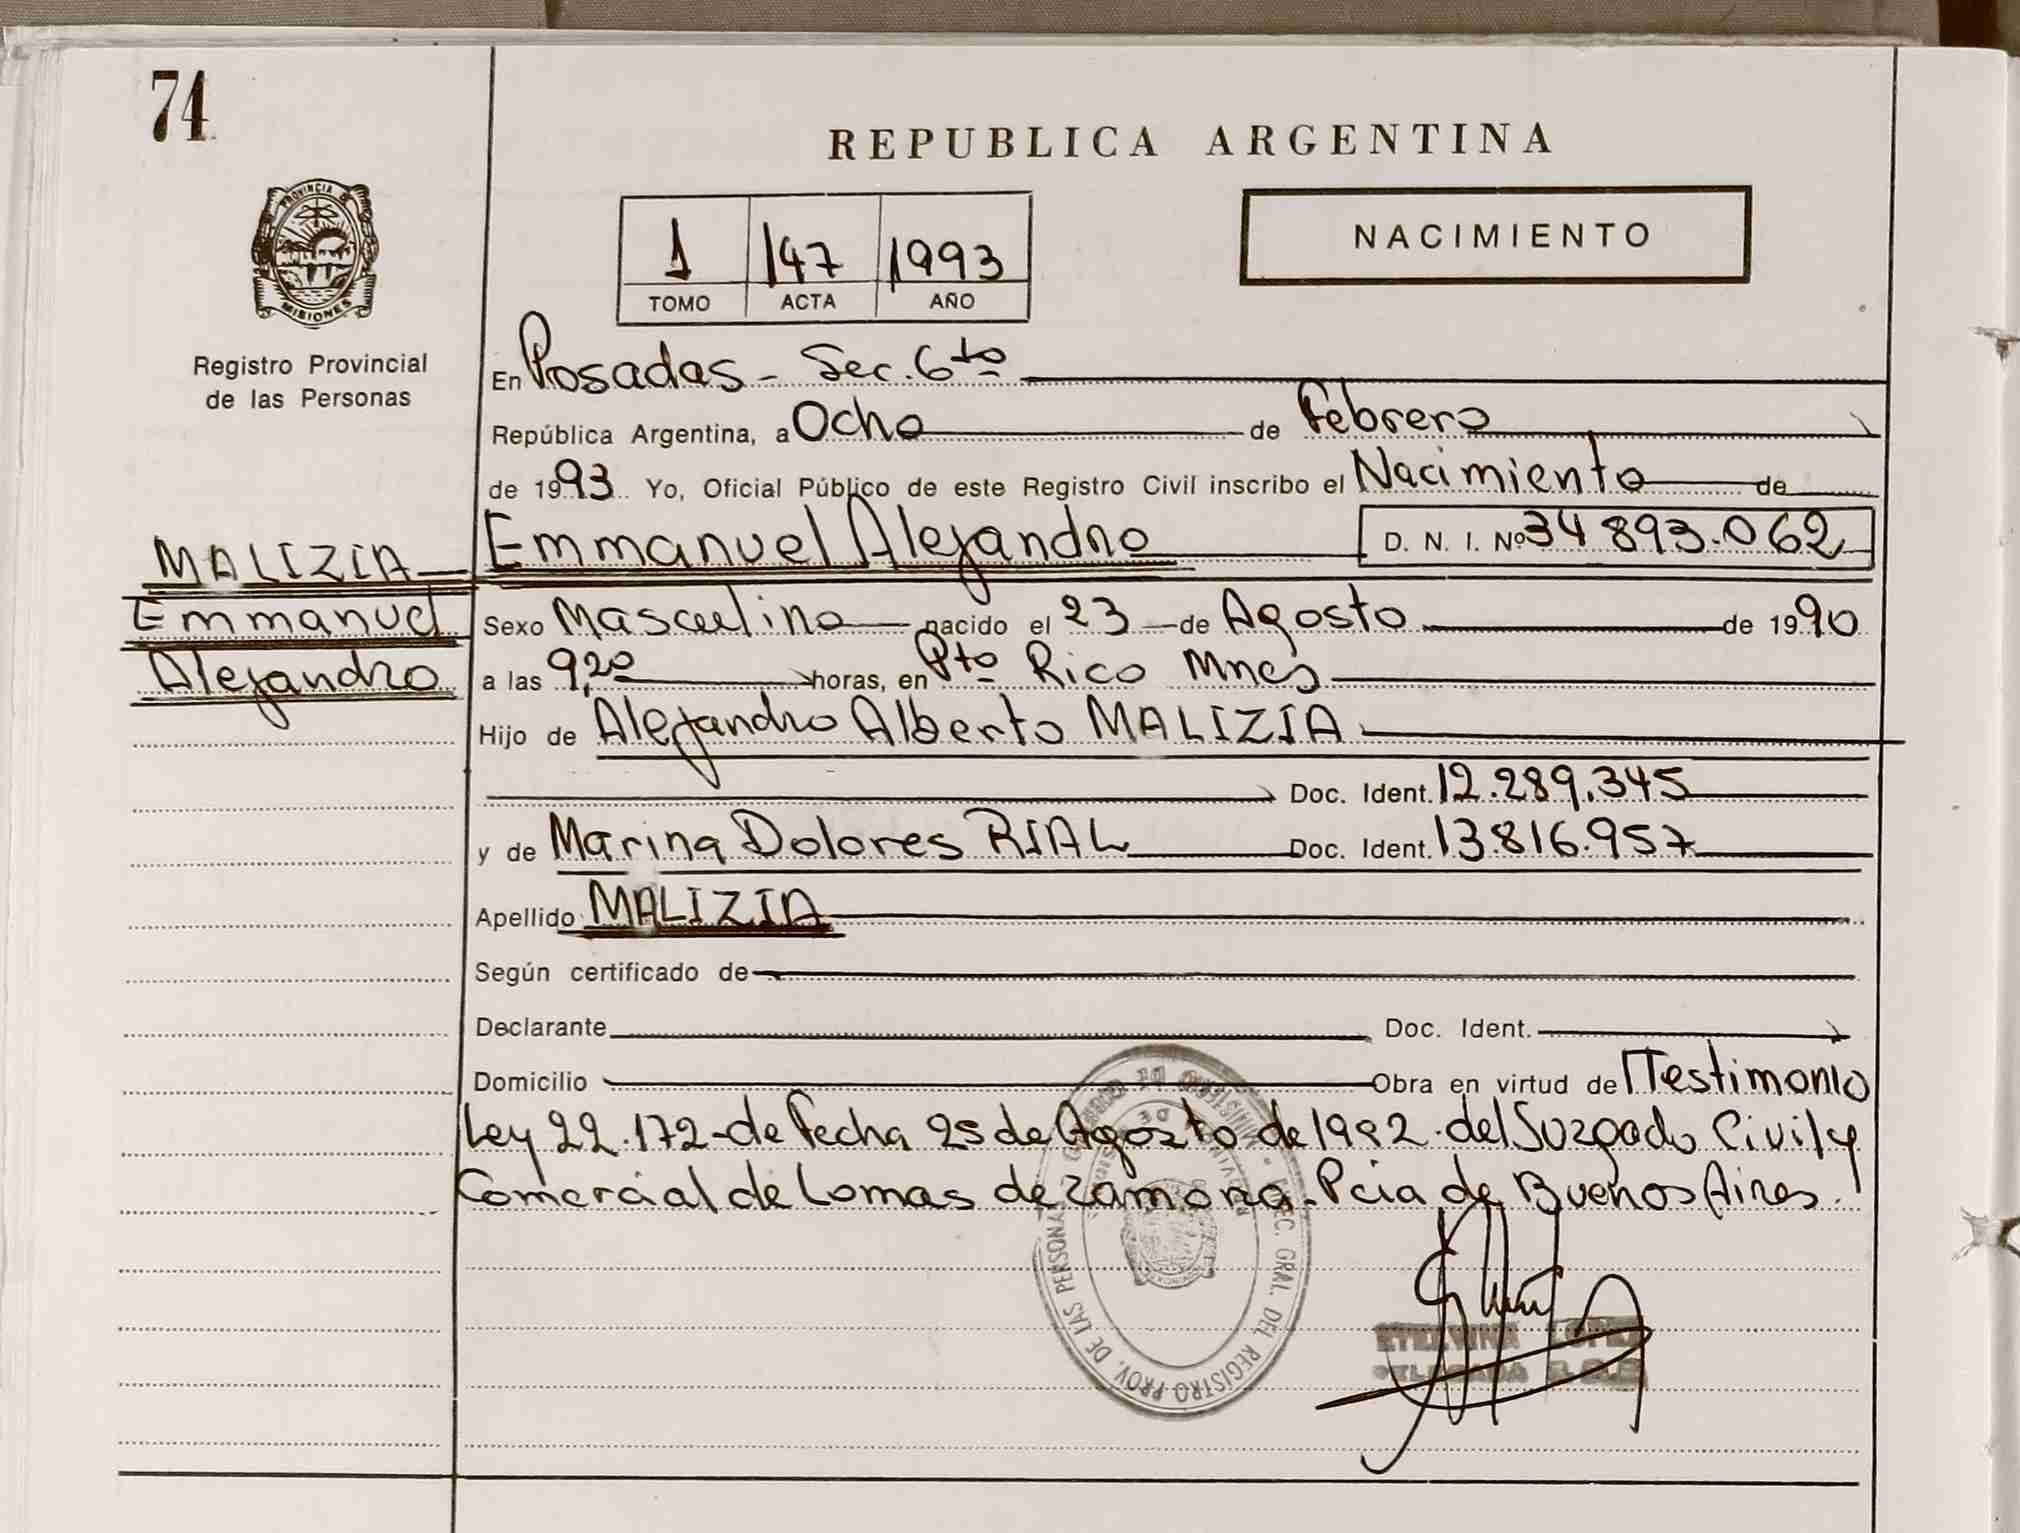 74
REPUBLICA ARGENTINA
PROVINCIA DE
MISIONES
Registro Provincial
de las Personas
1 147 1993
TOMO ACTA AÑO
NACIMIENTO
En Posadas - Sec. 6to
República Argentina, a Ocho de Febrero
de 1993 Yo, Oficial Público de este Registro Civil inscribo el Nacimiento de
Emmanuel Alejandro D. N. I. Nº 34 893.062
MALIZIA
Emmanuel
Alejandro
Sexo Masculino nacido el 23 de Agosto de 1990
a las 9,20 horas, en Pto Rico Mnes
Hijo de Alejandro Alberto MALIZIA
Doc. Ident. 12.289.345
y de Marina Dolores RIAL Doc. Ident. 13.816.957
Apellido MALIZIA
Según certificado de
Declarante Doc. Ident.
Domicilio Obra en virtud de Testimonio
Ley 22.172 - de Fecha 25 de Agosto de 1992 - del Juzgado Civil y
Comercial de Lomas de Zamora - Pcia de Buenos Aires.
DIREC. GRAL. DEL REGISTRO PROV. DE LAS PERSONAS
LOPEZ